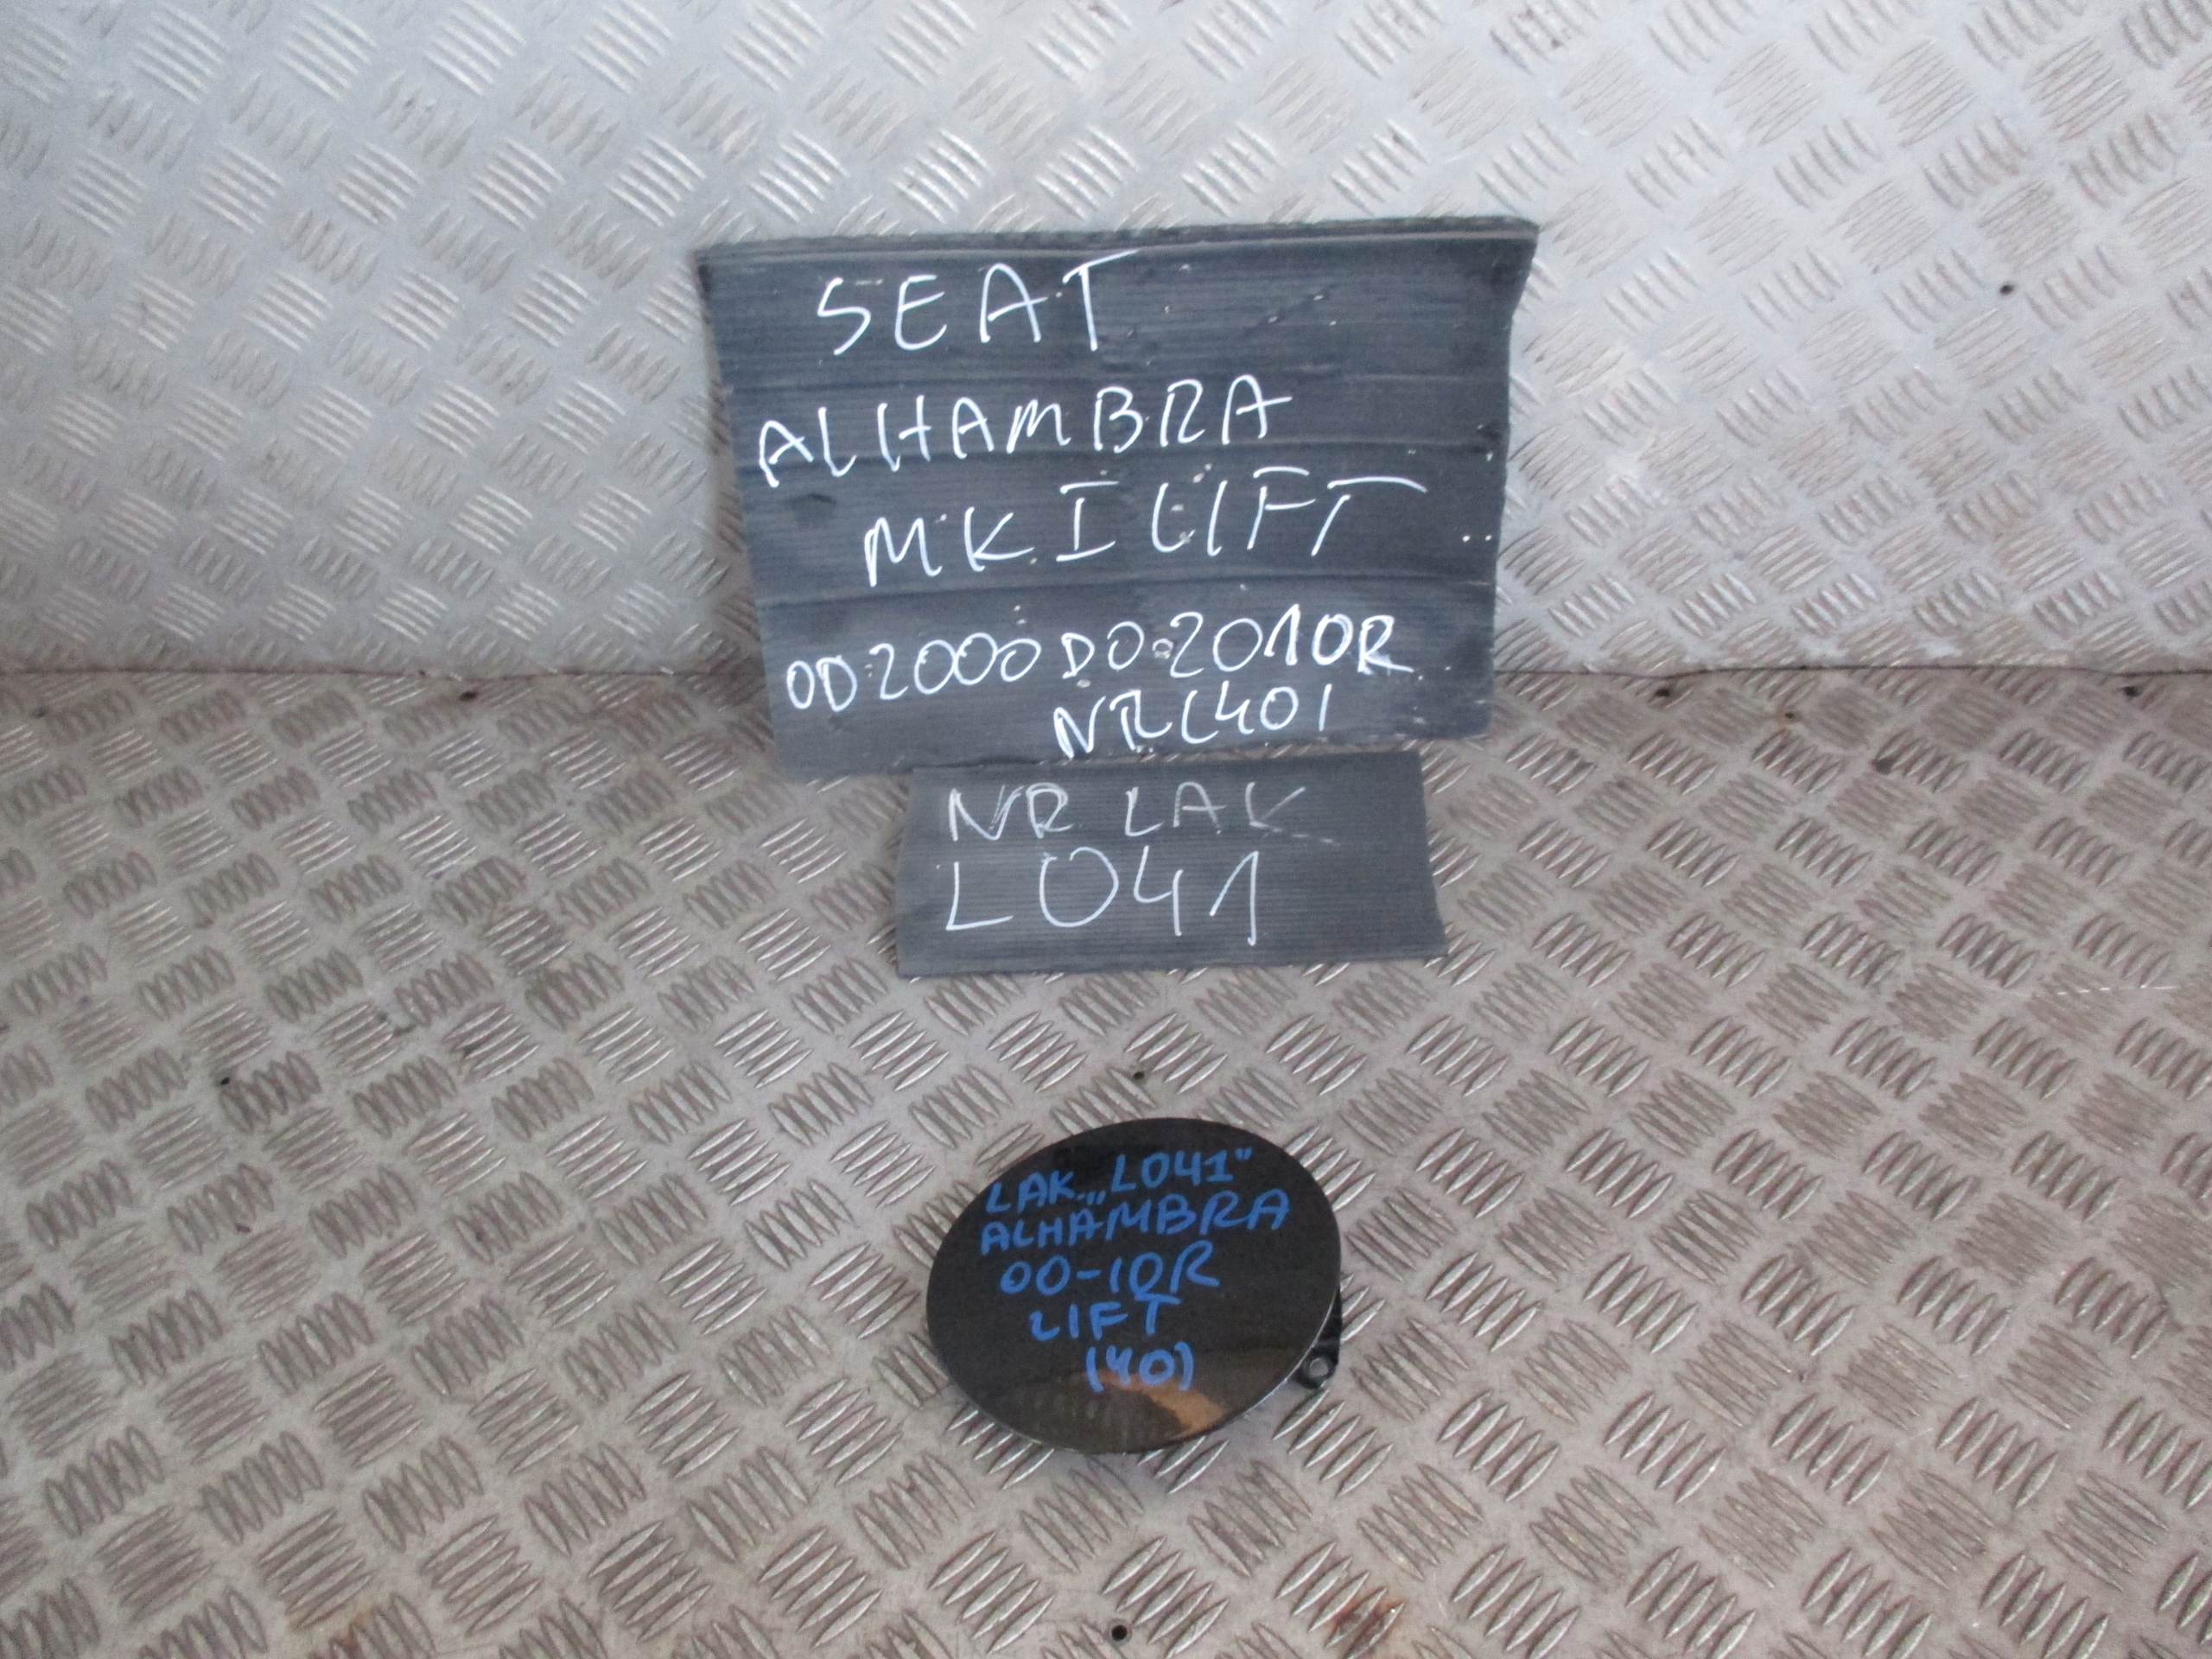 SEAT
ALHAMBRA
MK I LIFT
OD 2000 DO 2010R
NR L401
NR LAK
L041
LAK „L041"
ALHAMBRA
00-10R
LIFT
(40)